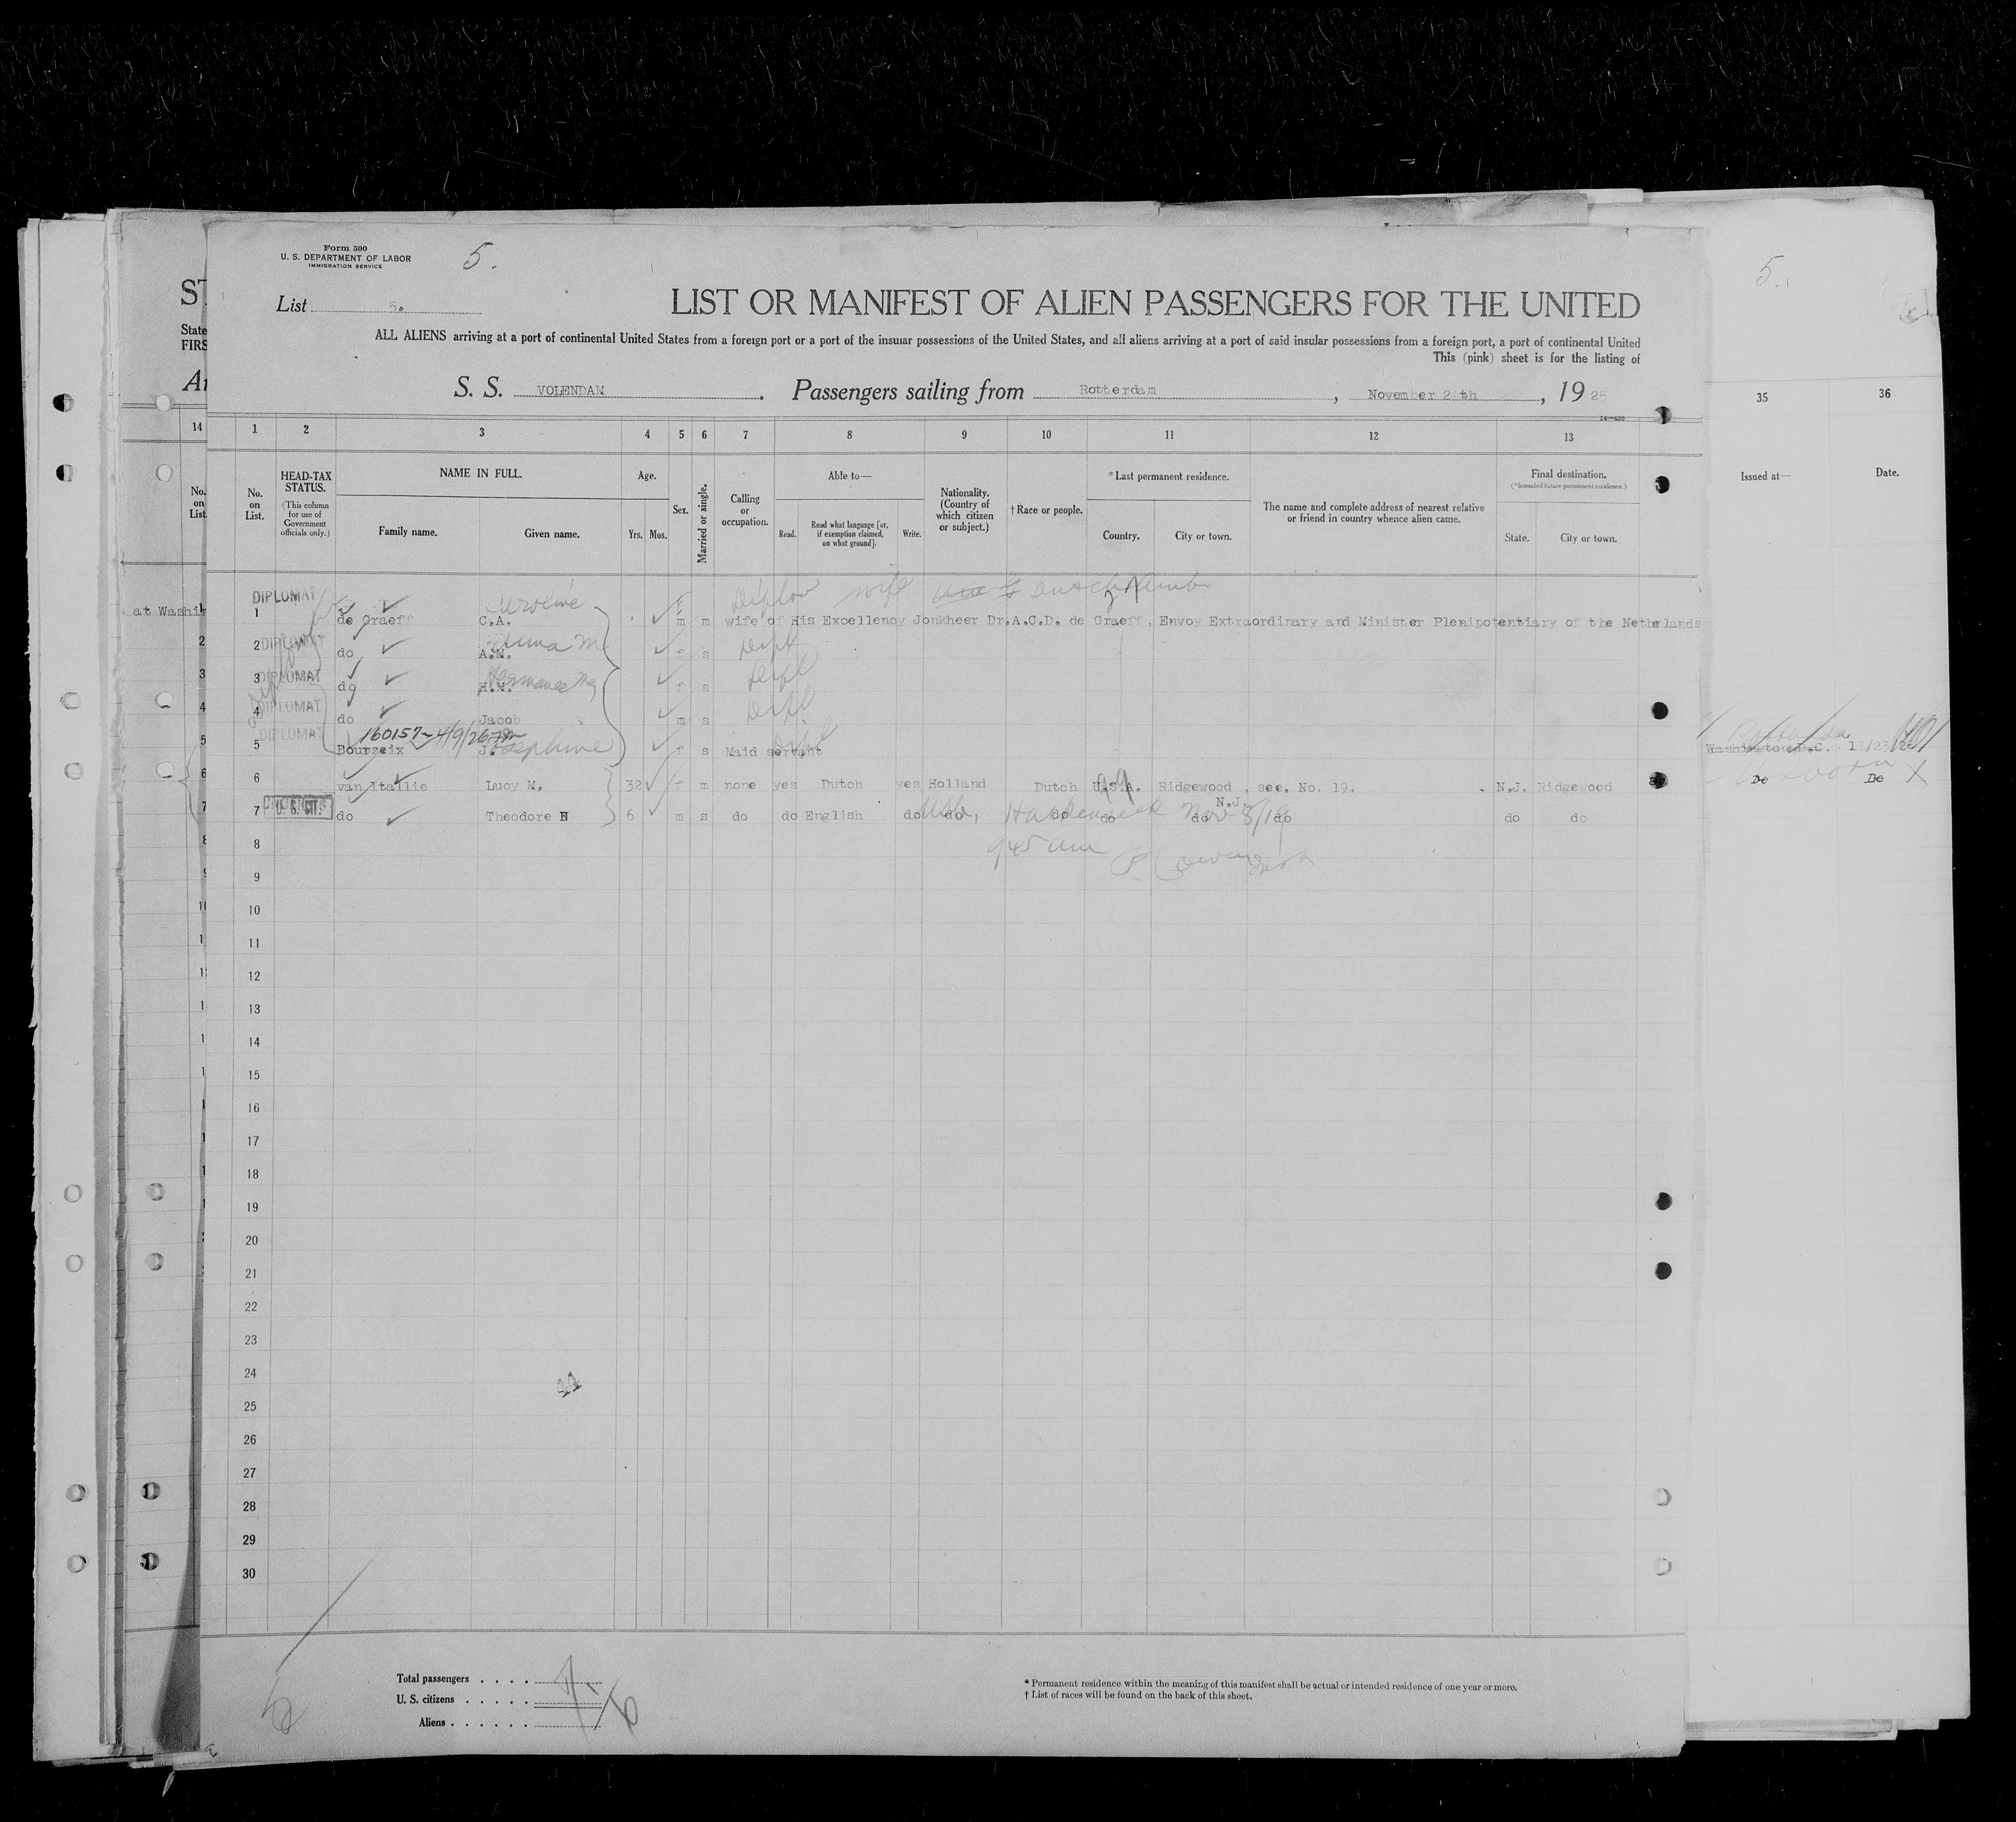 Form 500
U. S. DEPARTMENT OF LABOR
IMMIGRATION SERVICE
5.
List 5.
LIST OR MANIFEST OF ALIEN PASSENGERS FOR THE UNITED
ALL ALIENS arriving at a port of continental United States from a foreign port or a port of the insular possessions of the United States, and all aliens arriving at a port of said insular possessions from a foreign port, a port of continental United
This (pink) sheet is for the listing of
S. S. VOLENDAM. Passengers sailing from Rotterdam, November 2 th, 1925
14—430
1 2 3 4 5 6 7 8 9 10 11 12 13
No. on List.
HEAD-TAX STATUS.
(This column for use of Government officials only.)
NAME IN FULL.
Family name.
Given name.
Age.
Yrs. Mos.
Sex.
Married or single.
Calling or occupation.
Able to—
Read.
Read what language [or, if exemption claimed, on what ground].
Write.
Nationality. (Country of which citizen or subject.)
†Race or people.
*Last permanent residence.
Country.
City or town.
The name and complete address of nearest relative or friend in country whence alien came.
Final destination.
(*Intended future permanent residence.)
State.
City or town.
DIPLOMAT Caroline Diplom wife Dutch
1 de Graeff C.A. m m wife of His Excellency Jonkheer Dr.A.C.D. de Graeff, Envoy Extraordinary and Minister Plenipotentiary of the Netherlands
at Washi
2 DIPLOMAT do A.M. Anna M. f s Dipl
3 DIPLOMAT do H.M. f s Dipl
4 DIPLOMAT do Jacob m s Dipl
160157 4/9/26
5 DIPLOMAT Bourzeix J. Josephine f s Maid servant Dipl
6 van Itallie Lucy M. 32 f m none yes Dutch yes Holland Dutch U.S.A. Ridgewood, see. No. 19. N.J. Ridgewood
N.J.
7 U. S. CIT. do Theodore H 6 m s do do English do do do do do do do do
Hackensack Nov 8/19
945 am
8
9
10
11
12
13
14
15
16
17
18
19
20
21
22
23
24
25
26
27
28
29
30
Total passengers
U. S. citizens
Aliens
* Permanent residence within the meaning of this manifest shall be actual or intended residence of one year or more.
† List of races will be found on the back of this sheet.
ST
State
FIRS
Ar
14
No. on List.
5.
35 36
Issued at—
Date.
Rotterdam
Washington D.C. 11/23/25
Do Do X